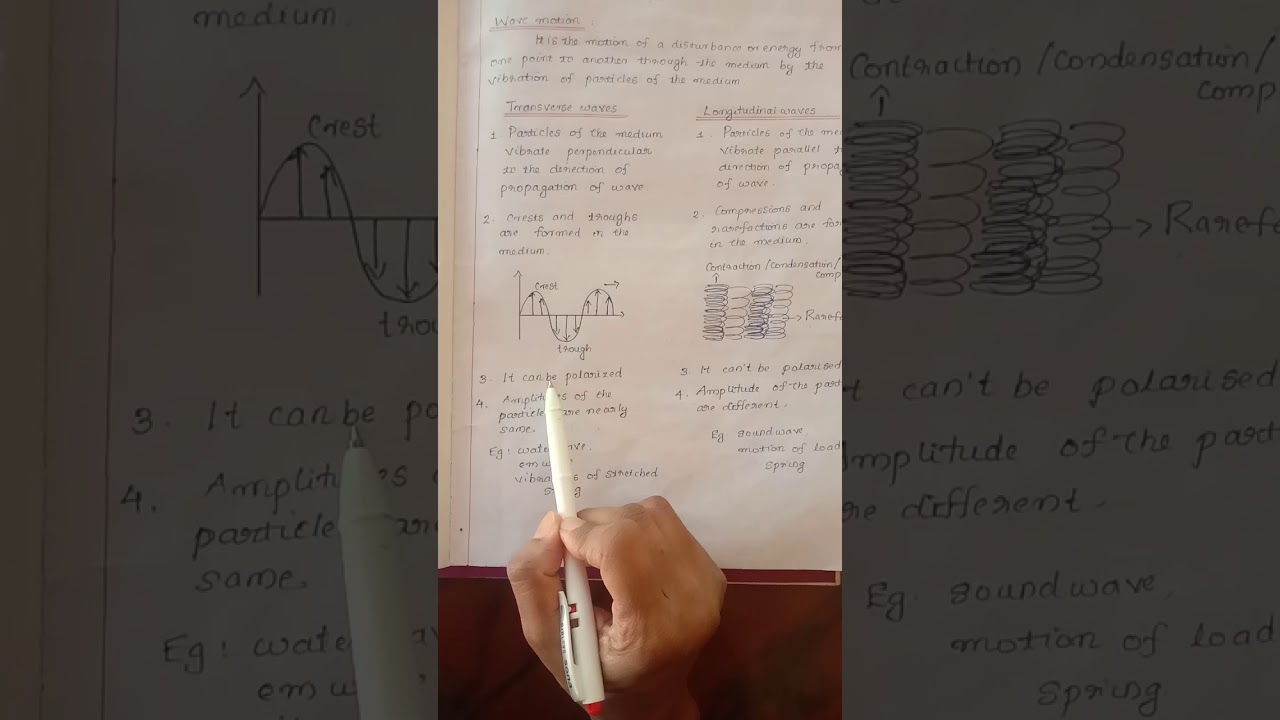 Wave motion :
It is the motion of a disturbance or energy from
one point to another through the medium by the
vibration of particles of the medium.
Transverse waves
1 Particles of the medium
vibrate perpendicular
to the derection of
propagation of wave.
2. Crests and troughs
are formed in the
medium.
Crest
trough
3. It can be polarized
4. Amplit es of the
particle are nearly
same.
Eg: wate ave,
em w
vibra s of stretched
st g
Longitudinal waves
1. Particles of the me
vibrate parallel t
direction of propag
of wave.
2. Compressions and
rarefactions are for
in the medium.
Contraction/Condensation/
comp
Raref
3. It can't be polarised
4. Amplitude of the part
are different.
Eg soundwave,
motion of load
spring
medium.
Crest
troug
3. It can be po
4. Amplit es
particle are
same.
Eg: wate av
em w
Contraction/Condensation/
comp
Raref
t can't be polarised
mplitude of the part
re different.
Eg. soundwave,
motion of load
spring